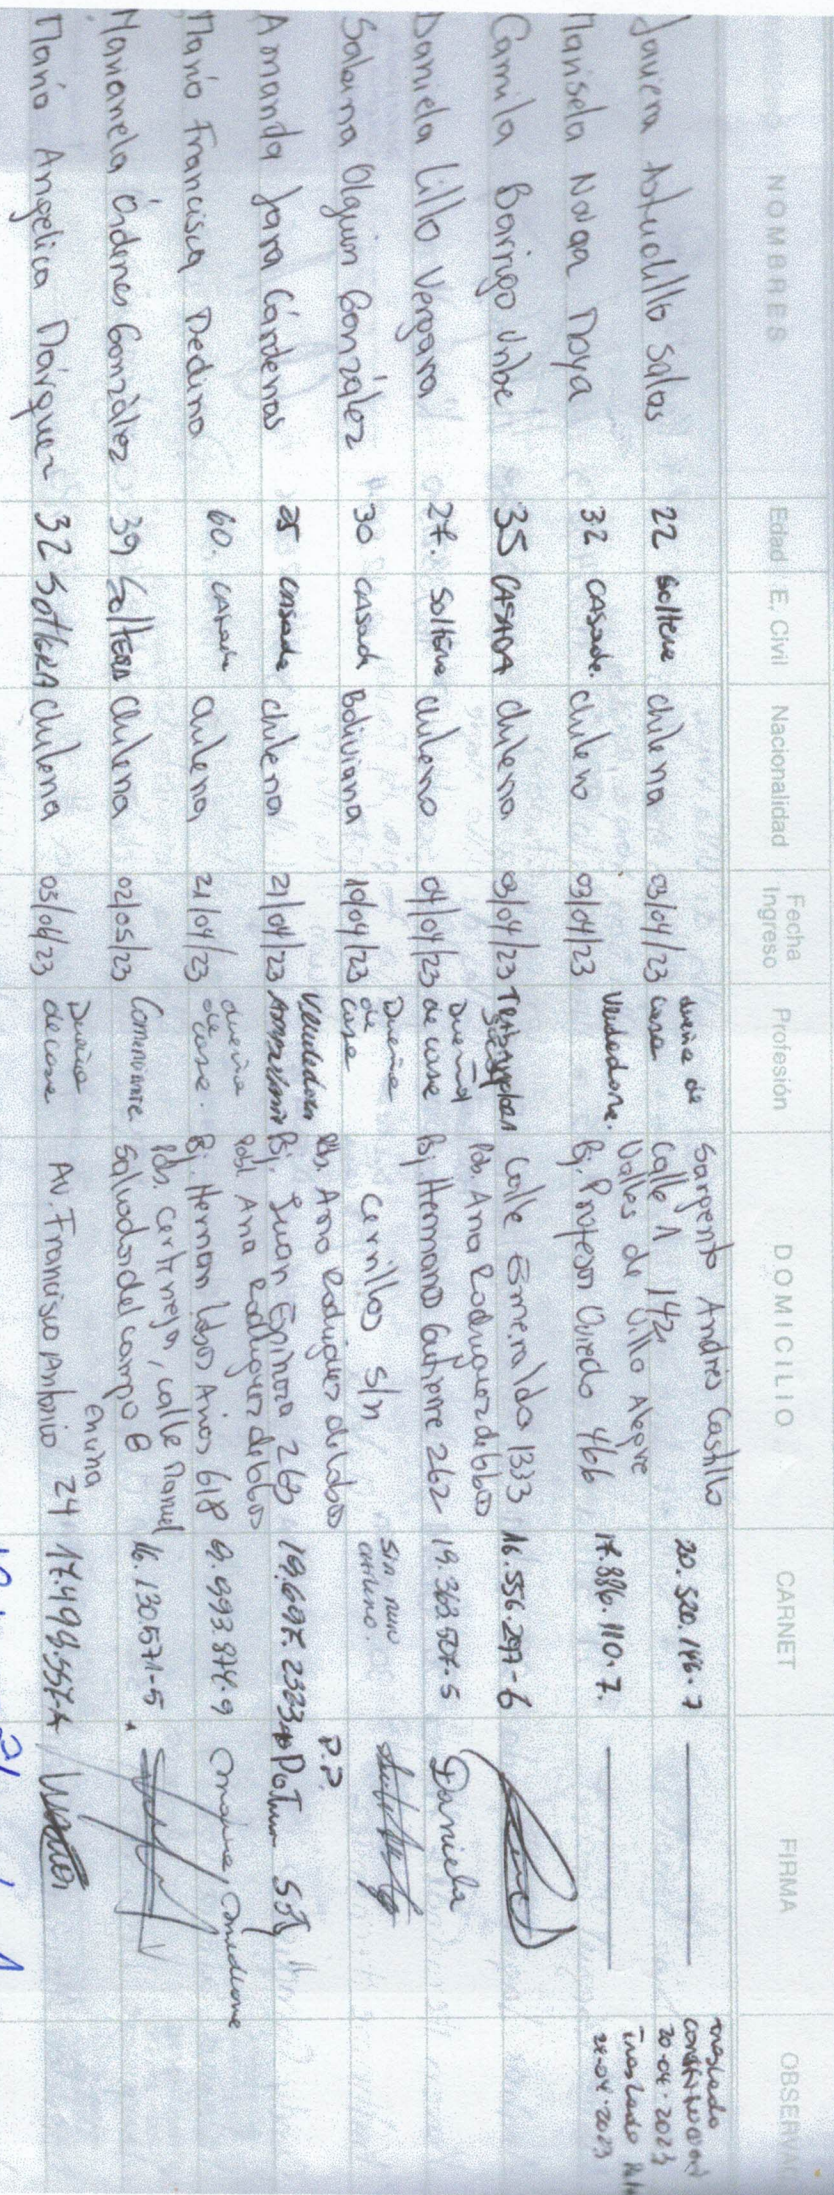 NOMBRES Edad E. Civil Nacionalidad Fecha Ingreso Profesión DOMICILIO CARNET FIRMA OBSERVAC
Javiera Astudillo Salas 22 soltera chilena 03/04/23 dueña de casa Sargento Andrés Castillo Calle 1 142 20.520.146-7 traslado 20-04-2023
Marisela Novoa Moya 32 casada. chilena 03/04/23 Vendedora. Valles de Villa Alegre Bj. Profesor Oviedo 466 17.886.110-7. traslado 24-04-2023
Camila Barrigo Uribe 35 CASADA chilena 03/04/23 Calle Esmeralda 1333 16.556.297-6
Daniela Lillo Vergara 27. soltera chilena 04/04/23 Dueña de casa Pob. Ana Rodriguez de lobos Bj Hermanos Gutierre 262 19.363.507-5 Daniela
Sabina Olguin González 30 casada Boliviana 10/04/23 Dueña de casa Cerrillos s/n sin
Amanda Jara Cárdenas 25 casada chilena 21/04/23 Vendedora Pob. Ana Rodriguez de lobos Bj. Juan Espinoza 263 19.697.232 P.P.
María Francisca Medina 60. casada chilena 21/04/23 dueña de casa. Pobl Ana Rodriguez de lobos Bj Hernan lobos Arias 618 9.993.874-9
Marianela Órdenes González 39 Soltera Chilena 02/05/23 Comerciante. Pob. Carlt calle Manuel Salvador del campo 8 16.130571-5
María Angelica Márquez 32 SOLTERA chilena 03/04/23 Dueña de casa Av. Francisco Antonio Encina 24 17.498.557-